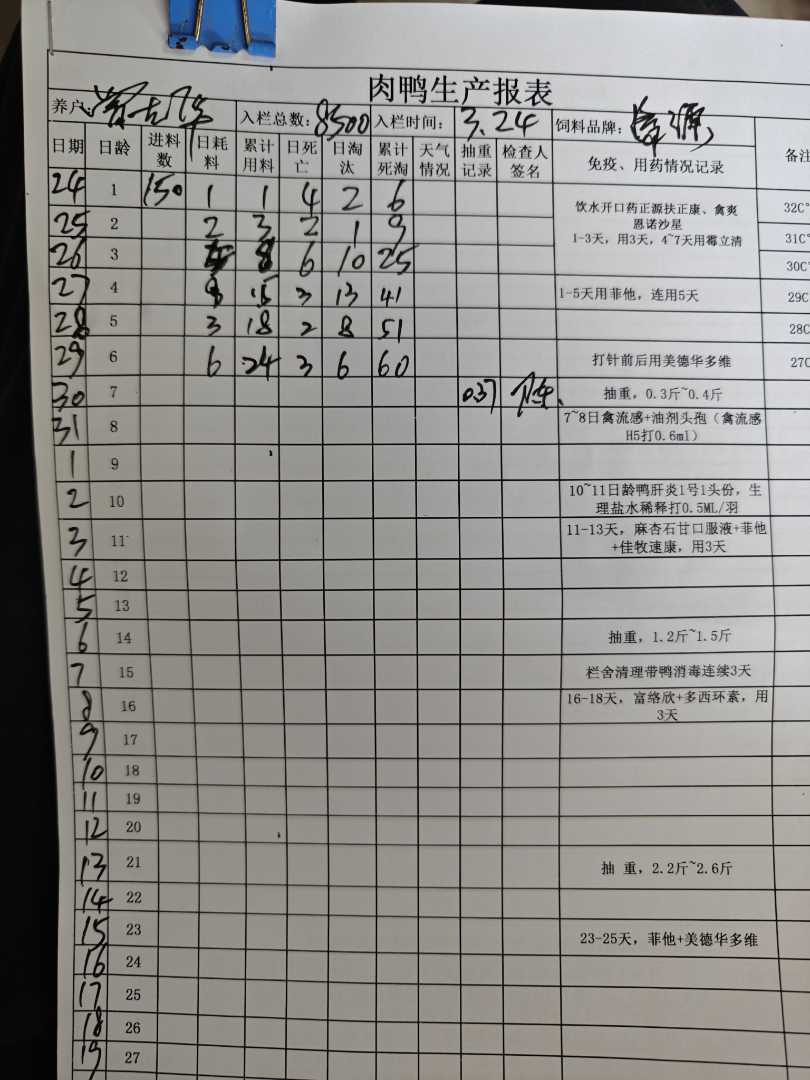 肉鸭生产报表
养户: 入栏总数: 8500 入栏时间: 3.24 饲料品牌:
日期 日龄 进料数 日耗料 累计用料 日死亡 日淘汰 累计死淘 天气情况 抽重记录 检查人签名 免疫、用药情况记录 备注
24 1 150 1 1 4 2 6 饮水开口药正源扶正康、禽爽恩诺沙星 32C°
25 2 2 3 2 1 9 1-3天，用3天，4~7天用霉立清 31C°
26 3 8 6 10 25 30C°
27 4 15 3 13 41 1-5天用菲他，连用5天 29C°
28 5 3 18 2 8 51 28C
29 6 6 24 3 6 60 打针前后用美德华多维 27C
30 7 0.37 抽重，0.3斤~0.4斤
31 8 7~8日禽流感+油剂头孢（禽流感H5打0.6ml）
1 9
2 10 10~11日龄鸭肝炎1号1头份，生理盐水稀释打0.5ML/羽
3 11 11-13天，麻杏石甘口服液+菲他+佳牧速康，用3天
4 12
5 13
6 14 抽重，1.2斤~1.5斤
7 15 栏舍清理带鸭消毒连续3天
8 16 16-18天，富络欣+多西环素，用3天
9 17
10 18
11 19
12 20
13 21 抽 重，2.2斤~2.6斤
14 22
15 23 23-25天，菲他+美德华多维
16 24
17 25
18 26
19 27